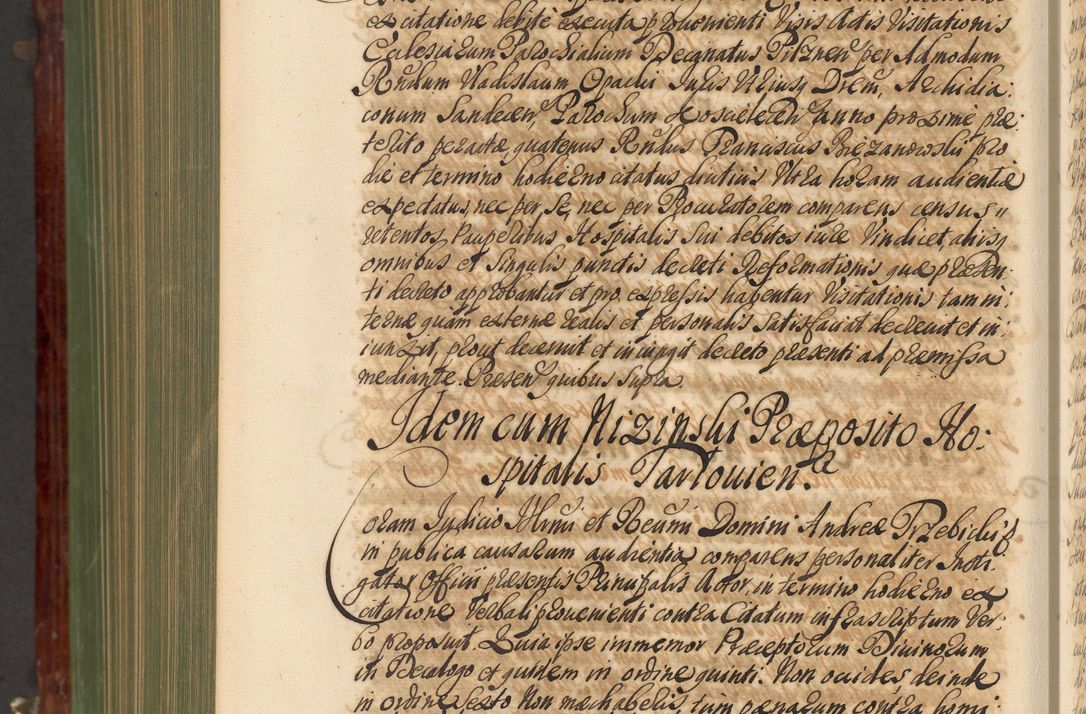 ex citatione debite executa provenienti Visis Actis Visitationis
Ecclesiarum Parochialium Decanatus Pilznen per Admodum
Rndum Vladislaum Opacki Juris Utriusq Drem, Archidia:
conum Sandecen, Parochum Anno proxime præ:
terito peractæ quatenus Rndus Franciscus Biezanowski pro
die et termino hodierno citatus diutius Ultra horam audientiæ
expectatus, nec per Se, nec per Procuratorem comparens census
retentos Pauperibus Hospitalis Sui debitos iure Vindicet, aliisq
omnibus et Singulis punctis decreti Reformationis quæ præsen:
ti decreto approbantur et pro expressis habentur Visitationis tam in:
ternæ quàm externæ realis et personalis Satisfaciat decrevit et in:
iunxit, prout decernit et iniungit decreto præsenti ad præmissa
mediante. Presen quibus Supra
Idem cum Nizinski Præposito Ho:
spitalis Tarlovien.
Coram Judicio Illrmi et Reverendi Domini Andreæ Trzebicki
in publica causarum audientia comparens personaliter Insti:
gator Officii præsentis Principalis Actor, in termino hodierno ex
citatione Verbali provenienti contra Citatum infrascriptum Ver:
bo proposuit. Quia ipse immemor Præceptorum Divinorum
in Decalogo et quidem in ordine quinti. Non occides, deinde
in ordine Sexto Non mæchaberis, tum pænarum contra homi: